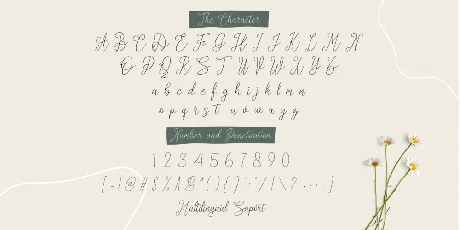 The Character
A B C D E F G H I J K L M N
O P Q R S T U V W X Y Z
a b c d e f g h i j k l m n
o p q r s t u v w x y z
Number and Punctuation
1 2 3 4 5 6 7 8 9 0
Multilingual Suport